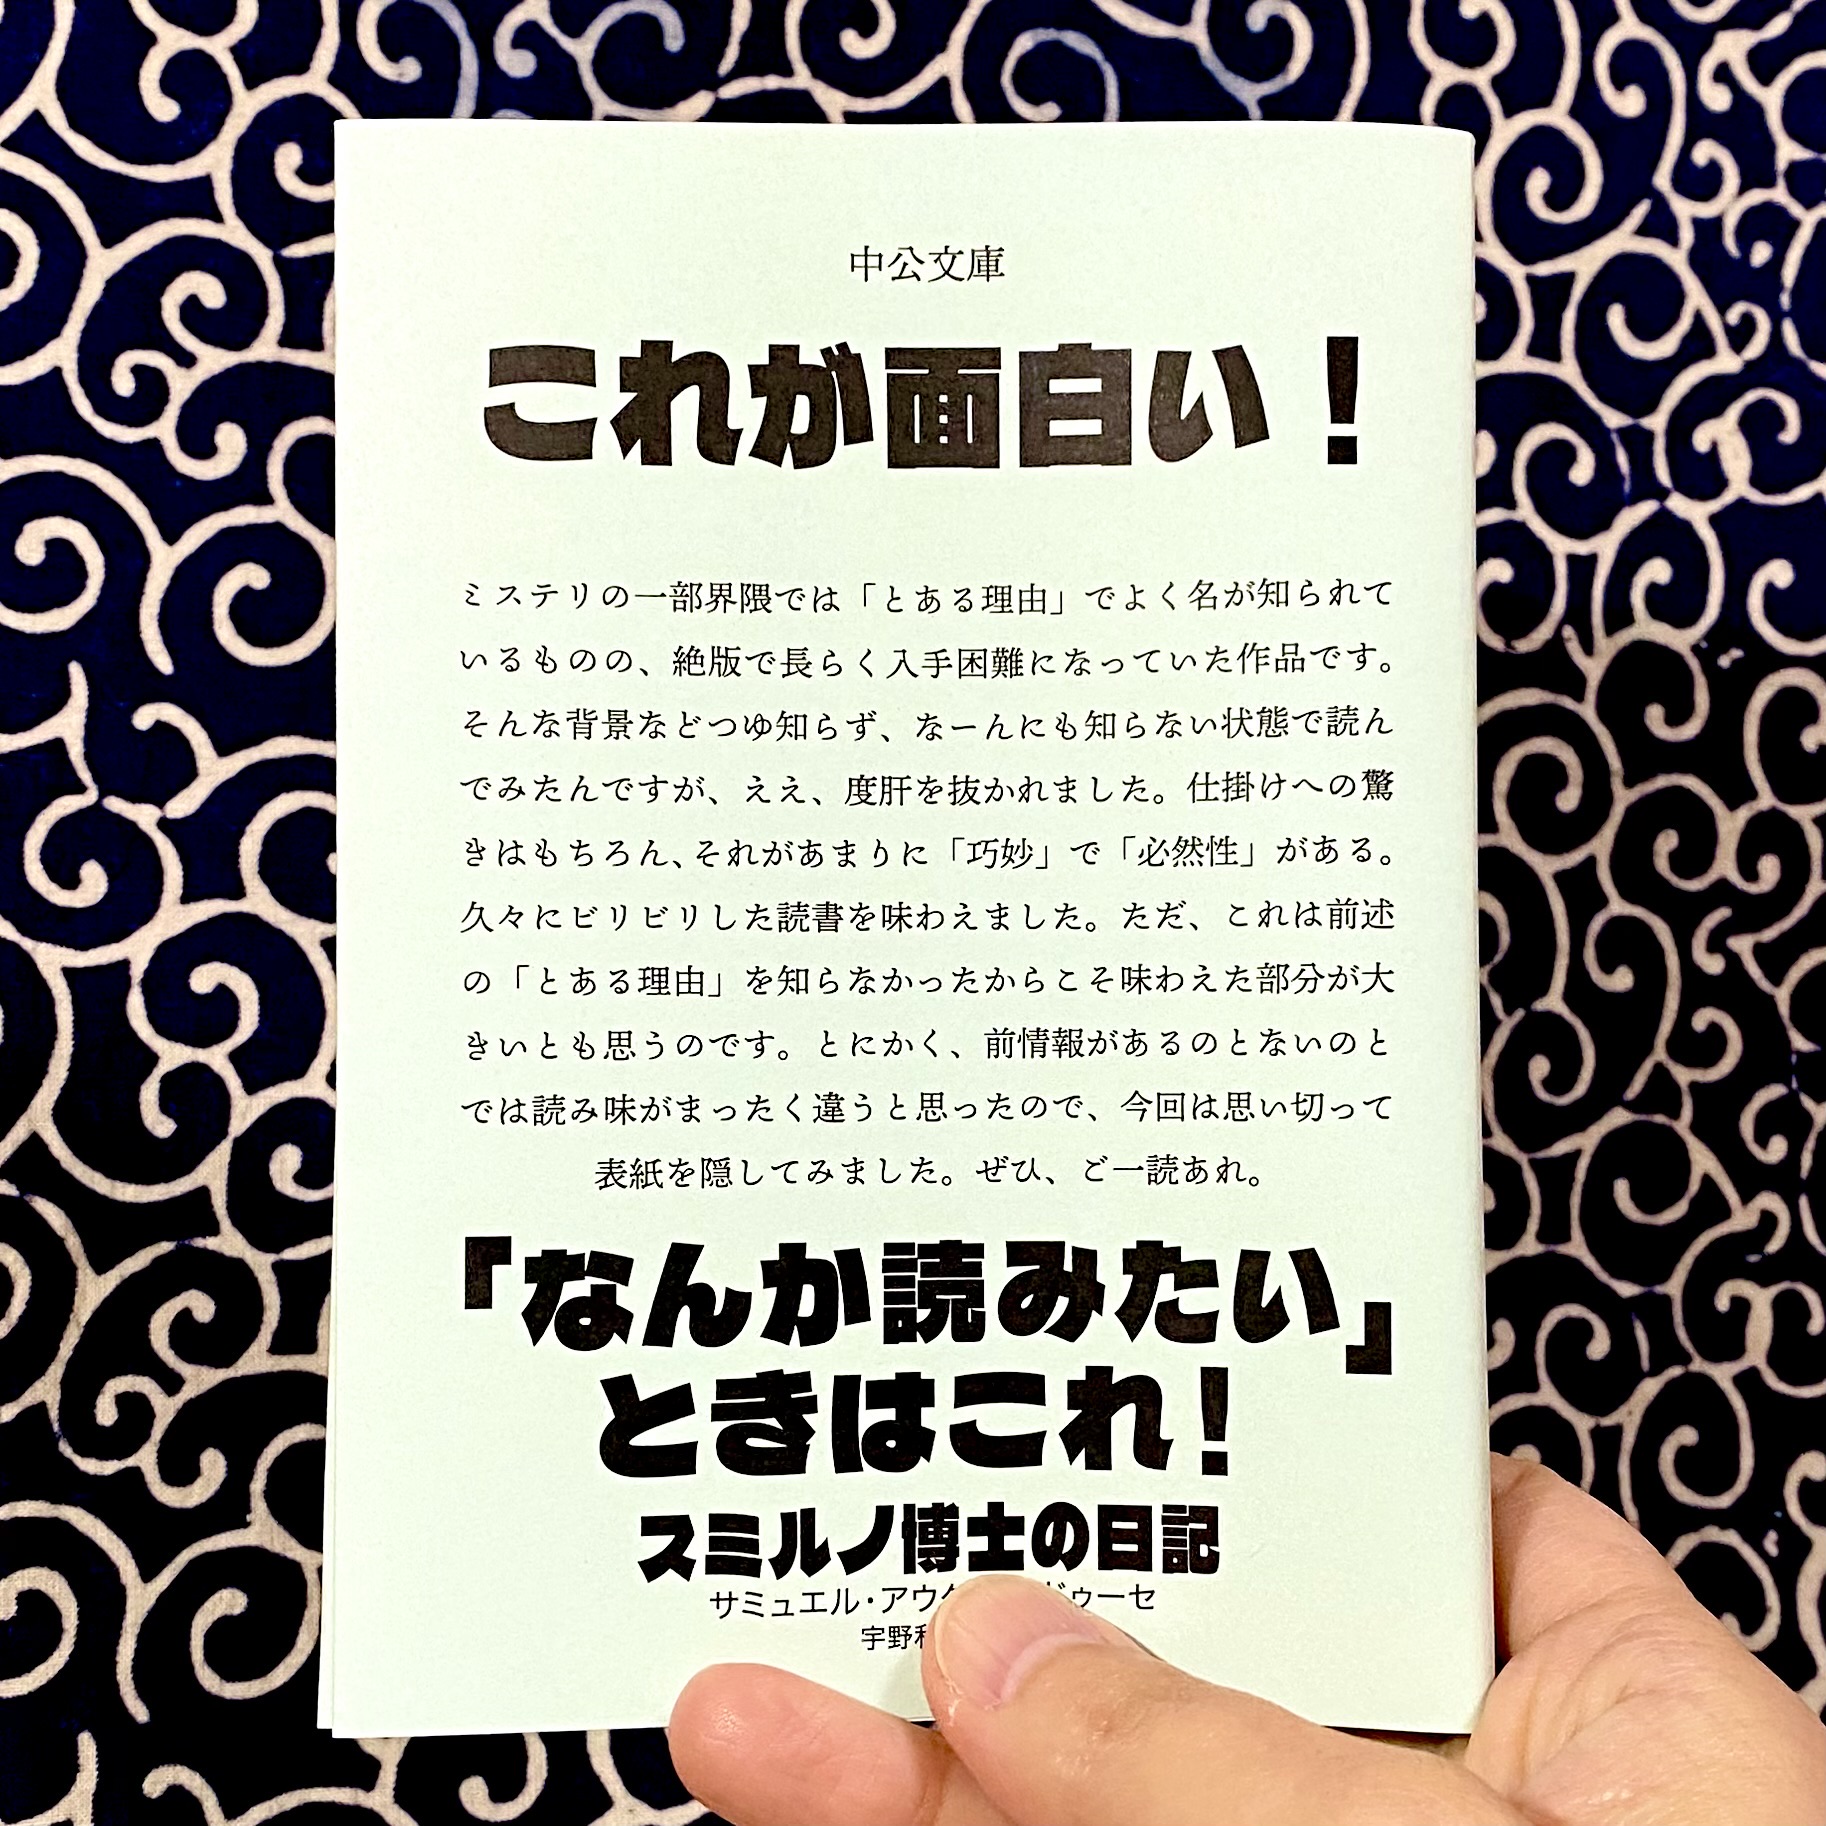 中公文庫
これが面白い！
ミステリの一部界隈では「とある理由」でよく名が知られて
いるものの、絶版で長らく入手困難になっていた作品です。
そんな背景などつゆ知らず、なーんにも知らない状態で読ん
でみたんですが、ええ、度肝を抜かれました。仕掛けへの驚
きはもちろん、それがあまりに「巧妙」で「必然性」がある。
久々にビリビリした読書を味わえました。ただ、これは前述
の「とある理由」を知らなかったからこそ味わえた部分が大
きいとも思うのです。とにかく、前情報があるのとないのと
では読み味がまったく違うと思ったので、今回は思い切って
表紙を隠してみました。ぜひ、ご一読あれ。
「なんか読みたい」
ときはこれ！
スミルノ博士の日記
サミュエル・アウ ドゥーセ
宇野